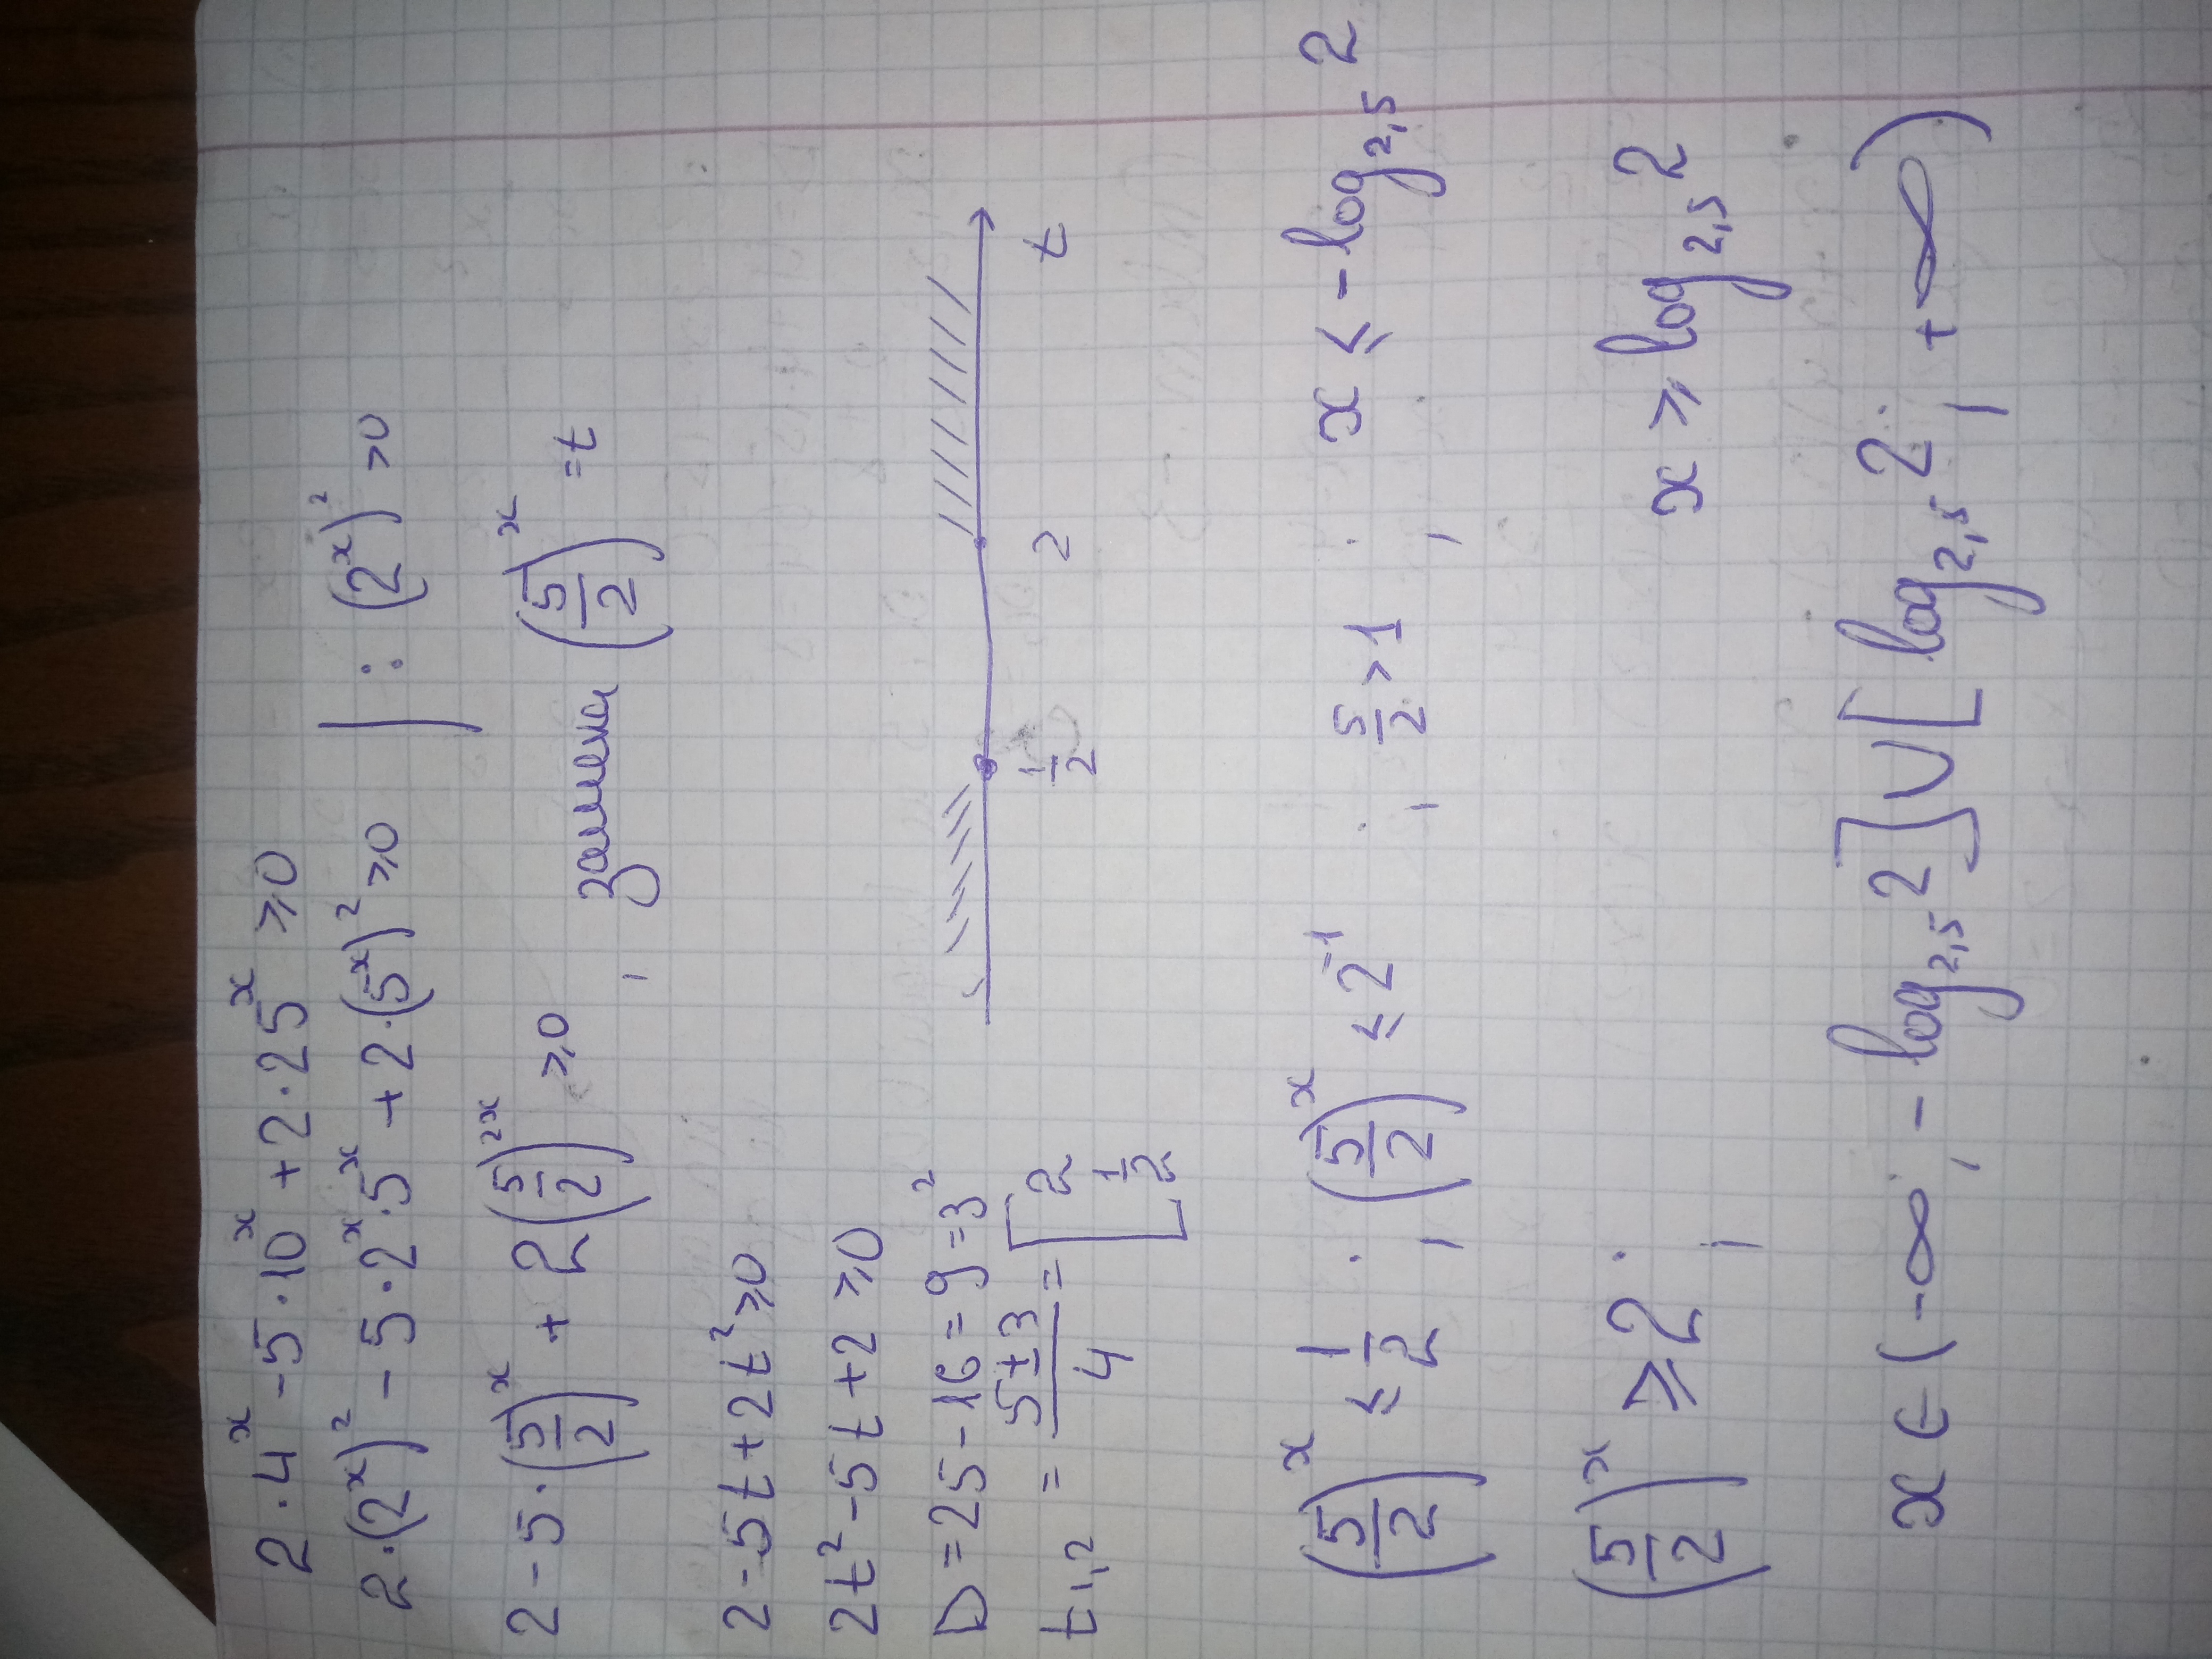 2·4ˣ -5·10ˣ +2·25ˣ ≥0
2·(2ˣ)² -5·2ˣ·5ˣ +2·(5ˣ)² ≥0 | : (2ˣ)² >0
2-5·(5/2)ˣ + 2(5/2)²ˣ ≥0 , замена (5/2)ˣ =t
2-5t+2t² ≥0
2t²-5t+2 ≥0
D=25-16=9=3²
t₁,₂ = (5±3)/4 = [2 1/2
1/2 2 t
(5/2)ˣ ≤ 1/2 ; (5/2)ˣ ≤ 2⁻¹ ; 5/2 >1 ; x ≤ -log₂,₅ 2
(5/2)ˣ ≥2 ; x ≥ log₂,₅ 2
x ∈ (-∞; -log₂,₅ 2] ∪ [log₂,₅ 2; +∞)